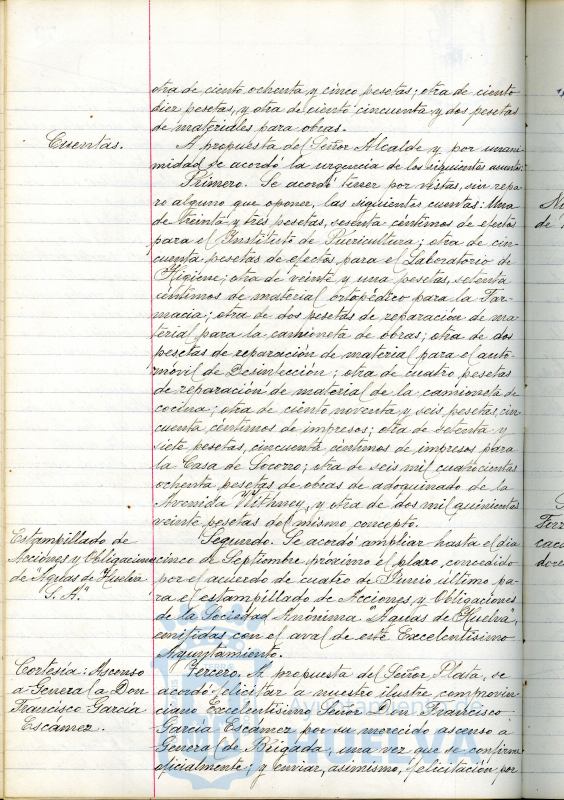 otra de ciento ochenta y cinco pesetas; otra de ciento
diez pesetas, y otra de ciento cincuenta y dos pesetas
de materiales para obras.
Cuentas.
A propuesta del Señor Alcalde y por unani-
midad se acordó la urgencia de los siguientes asuntos:
Primero. Se acordó tener por vistas, sin repa-
ro alguno que oponer, las siguientes cuentas: Una
de treinta y tres pesetas, sesenta céntimos de efectos
para el Instituto de Puericultura; otra de cin-
cuenta pesetas de efectos para el Laboratorio de
Higiene; otra de veinte y una pesetas, setenta
céntimos de material ortopédico para la Far-
macia; otra de dos pesetas de reparación de ma-
terial para la camioneta de obras; otra de dos
pesetas de reparación de material para el auto-
móvil de Desinfección; otra de cuatro pesetas
de reparación de material de la camioneta de
cocina; otra de ciento noventa y seis pesetas, cin-
cuenta céntimos de impresos; otra de setenta y
siete pesetas, cincuenta céntimos de impresos para
la Casa de Socorro; otra de seis mil cuatrocientas
ochenta pesetas de obras de adoquinado de la
Avenida Withney, y otra de dos mil quinientas
veinte pesetas del mismo concepto.
Estampillado de
Acciones y Obligaciones
de Aguas de Huelva
S. A."
Segundo. Se acordó ampliar hasta el día
cinco de Septiembre próximo el plazo, concedido
por el acuerdo de cuatro de Junio último pa-
ra el estampillado de Acciones y Obligaciones
de la Sociedad Anónima "Aguas de Huelva",
emitidas con el aval de este Excelentísimo
Ayuntamiento.
Cortesía: Ascenso
a General a Don
Francisco García
Escámez.
Tercero. A propuesta del Señor Plata, se
acordó felicitar a nuestro ilustre comprovin-
ciano Excelentísimo Señor Don Francisco
García Escámez por su merecido ascenso a
General de Brigada, una vez que se confirme
oficialmente; y enviar, asimismo, felicitación por